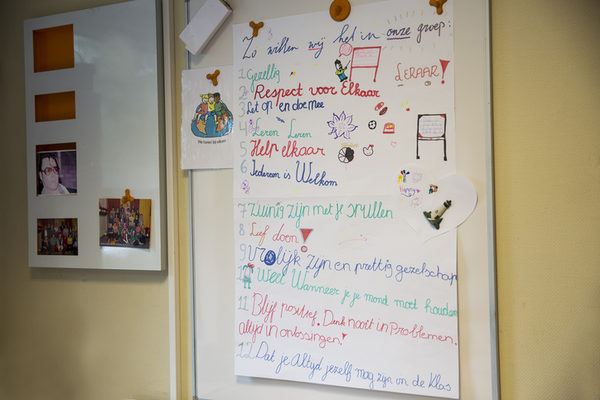 Zo willen wij het in onze groep:
1 Gezellig
LERAAR!
2 Respect voor Elkaar
3 Let op en doe mee
4 Leren Leren
5 Help elkaar
6 Iedereen is Welkom
7 Zuinig zijn met je spullen
8 Lief doen!
9 Vrolijk zijn en prettig gezelschap
10 Weet Wanneer je je mond moet houden
11 Blijf positief. Denk nooit in Problemen.
altijd in oplossingen!
12 Dat je Altijd jezelf mag zijn in de Klas